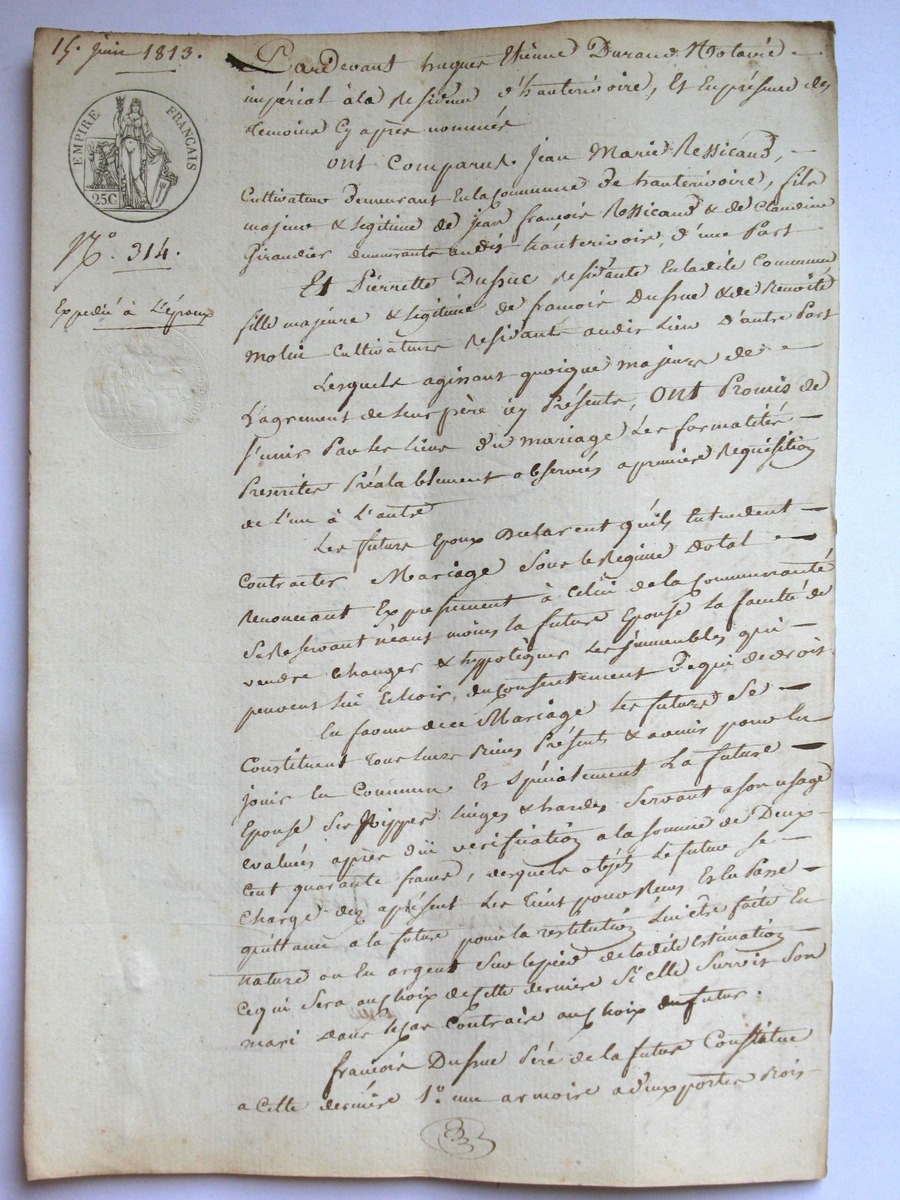 15. juin 1813.
EMPIRE FRANÇAIS
25C
N.o 314.
Expedié à L'époux
Pardevant hugues Etienne Durand Notaire
impérial à la Residence d'hauterivoire, Et En présence des
temoins Cy après nommés
ont Comparus. Jean Marie Ressicaud,
Cultivateur Demeurant En la Commune De hauterivoire, fils
majeur & legitime de jean françois Ressicaud & de Claudine
Girandier demeurants audit hauterivoire, d'une Part
Et Pierrette Dussuc residante En ladite Commune
fille majeure & legitime de francois Dussuc & de Benoite
Molin Cultivateurs Residants audit Lieu D'autre Part
Lesquels agissant quoique majeurs de
L'agrement de leur père icy Présents, ont Promis de
s'unir Par les liens du mariage Les formalités
Prescrites Préalablement observées a première Requisition
de l'un à L'autre
Les futurs Epoux Declarent qu'ils Entendent
Contracter Mariage Sous le Regime Dotal
Renoncant Expressement à Celui de la Communauté
Se Reservant néant moins la future Epouse La faculté de
vendre Echanger & hyppotéquer Les immeubles qui
peuvent lui Echoir, du Consentement De qui de droit.
En faveur de ce Mariage Les futurs Se
Constituent tous leurs Biens Présents & avenir pour En
jouir En Commun Et spécialement La future
Epouse Ses Nippes Linges & hardes Servant a son usage
evalués après dûë vérification a la somme de Deux
Cent quarante francs, desquels objets Le futur se
Charge dez aprésent Les tient pour Reçus Et En Passe
quittance a la future pour la restitution Lui être faite En
nature ou En argent Sur le pied de ladite Estimation
Ce qui Sera au choix de Cette derniere Si elle Survit Son
mari Dans le Cas Contraire au choix du futur.
françois Dussuc Père de la future Constitue
a Cette dernière 1.o une armoire a deux portes Bois